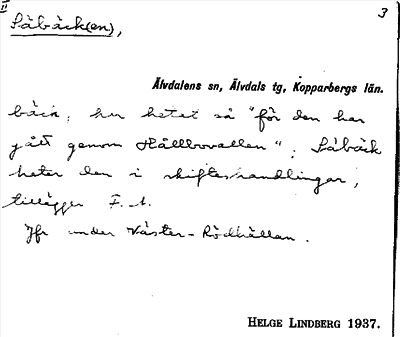 II
3
Såbäck(en),
Älvdalens sn, Älvdals tg, Kopparbergs län.
bäck, har hetat så "för den har
gått genom Hållbovallen". Såbäck
heter den i skifteshandlingar,
tillägger F. A.
Jfr under Väster-Rödhällan.
HELGE LINDBERG 1937.